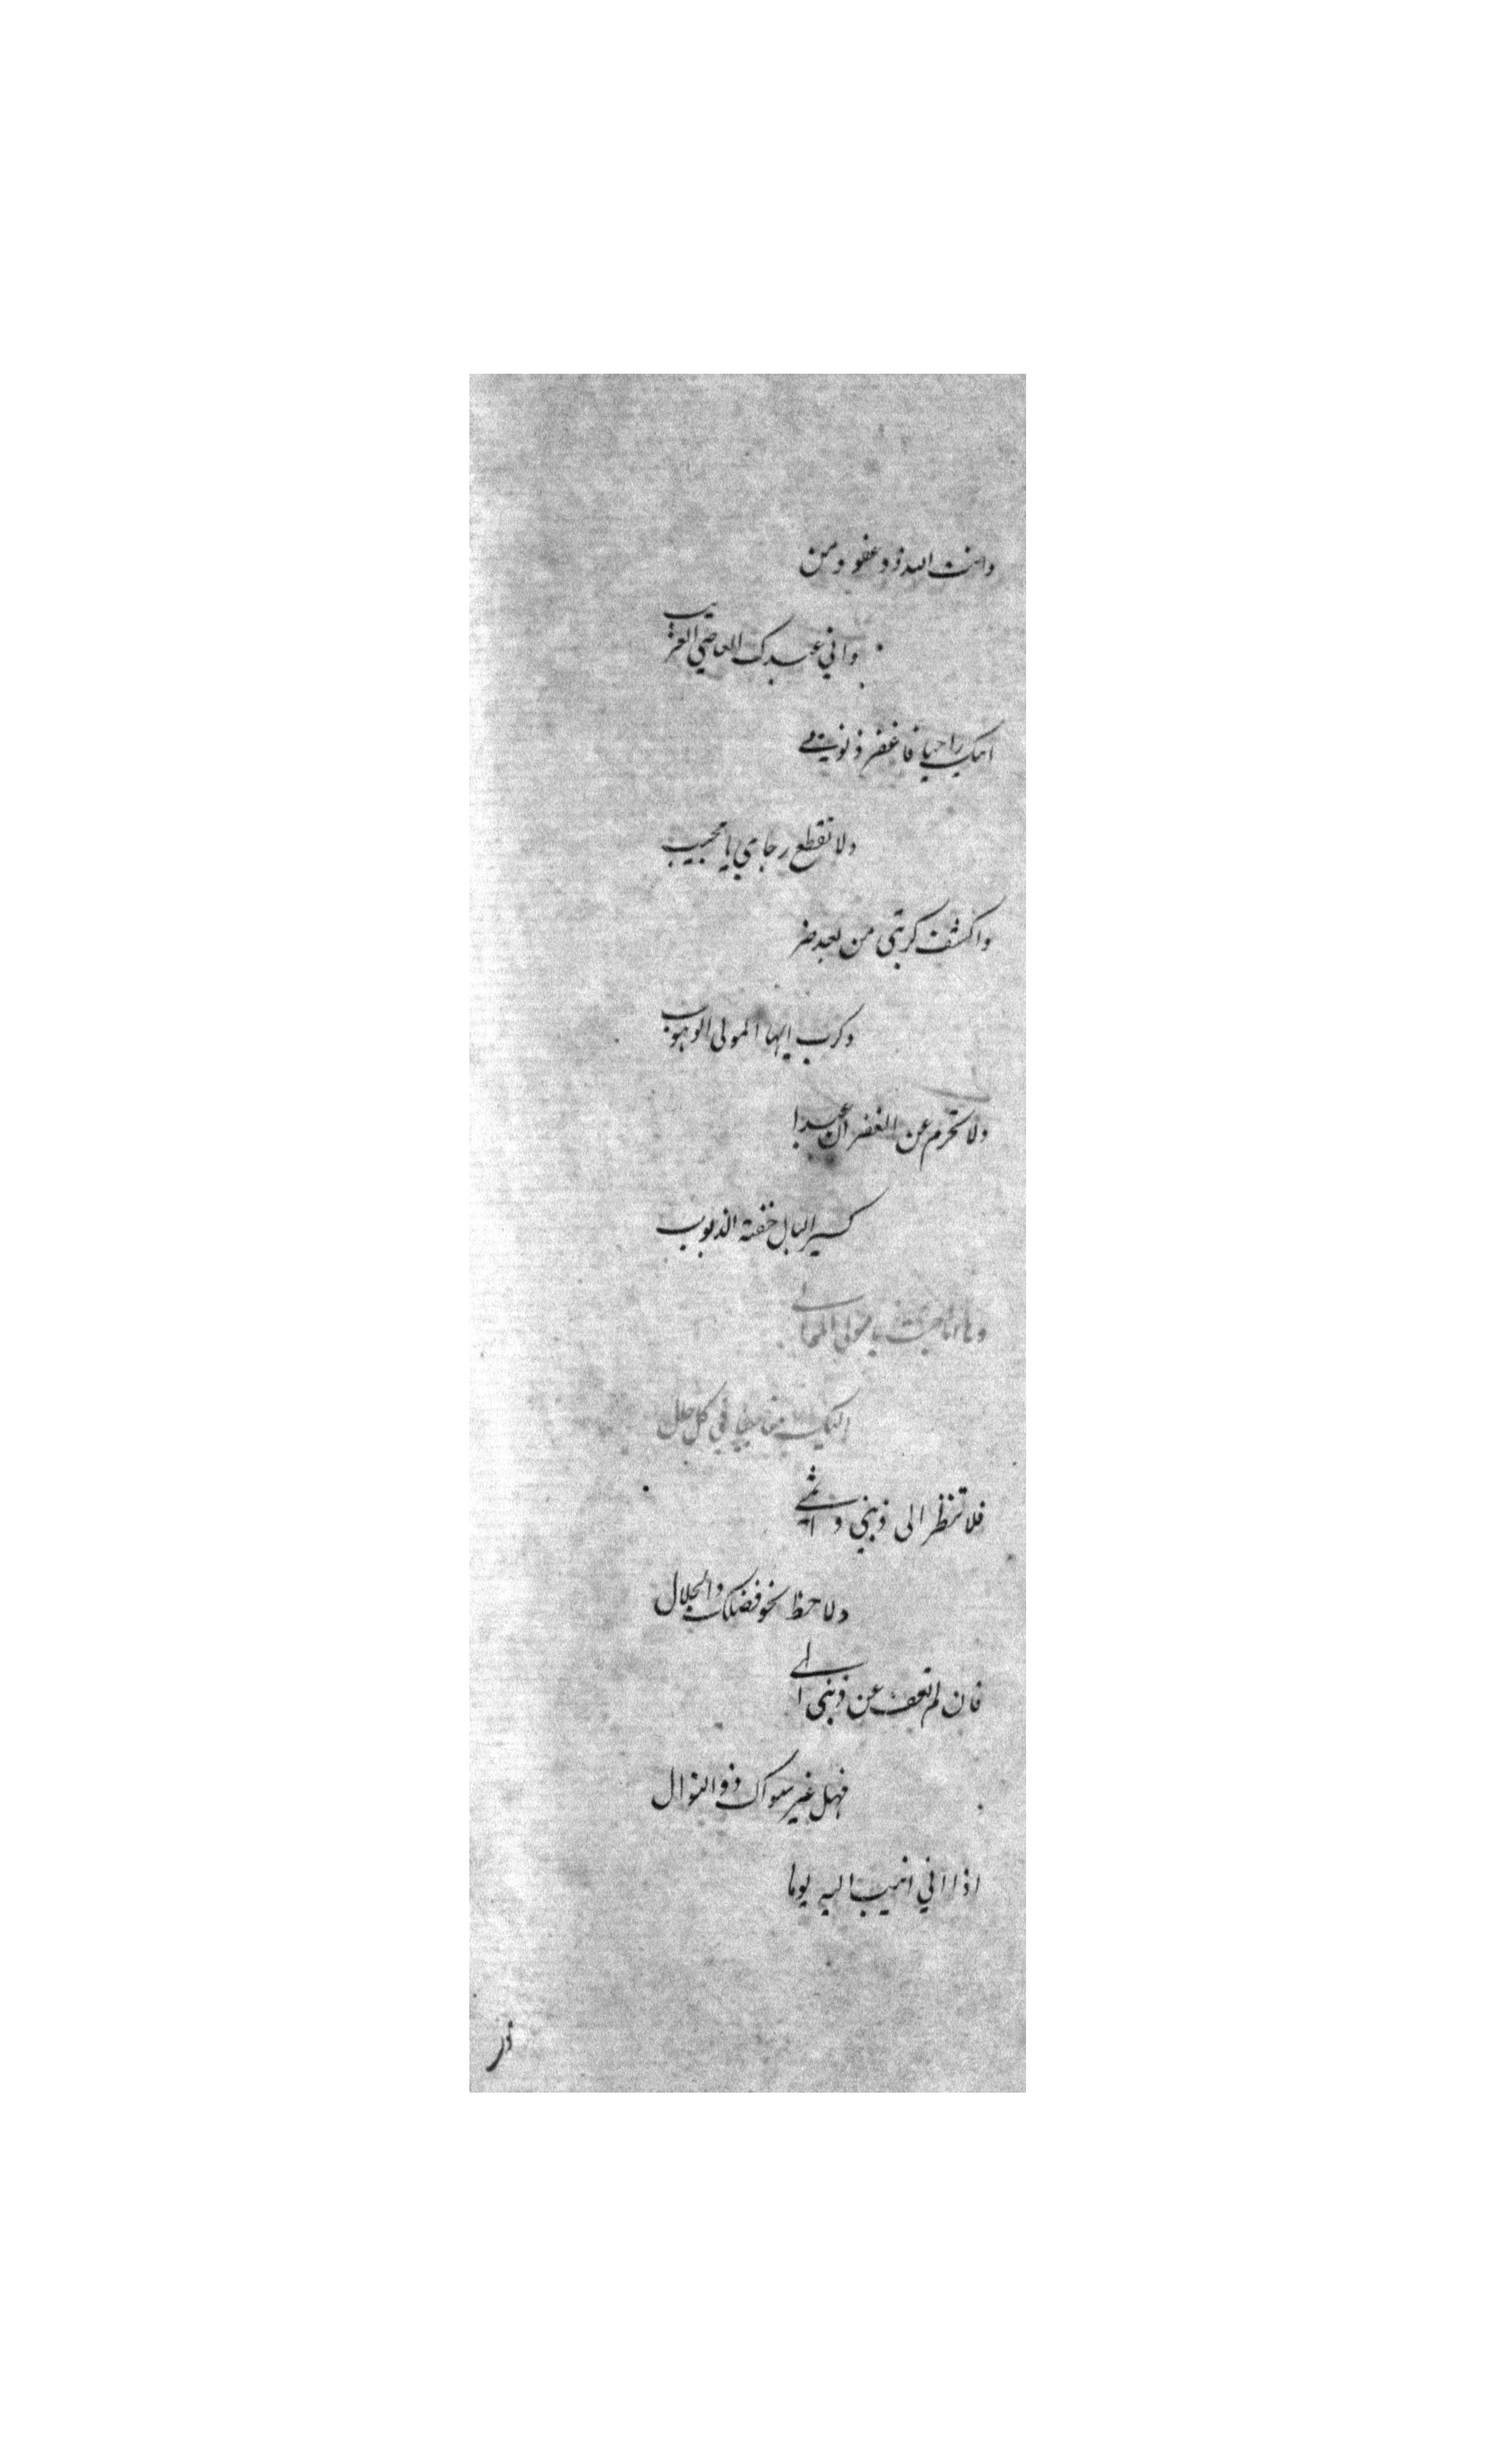 وانت الله ذو عفو ومن
واني عبدك العاصي الغريب
اتيتك راجيا فاغفر ذنوبي
ولا تقطع رجاي يا مجيب
واكشف كربتي من بعد ضر
وكرب ايها المولى الوهوب
ولا تحرم عن الغفران عبدا
كسير البال خفته الذنوب
وها انا جئت يا مولى الموالي
اليك في كل حال
فلا تنظر الى ذنبي واثمي
ولاحظ نحو فضلك والجلال
فان لم تعف عن ذنبي الهي
فهل غير سواك ذو النوال
اذا اني انيب اليه يوما